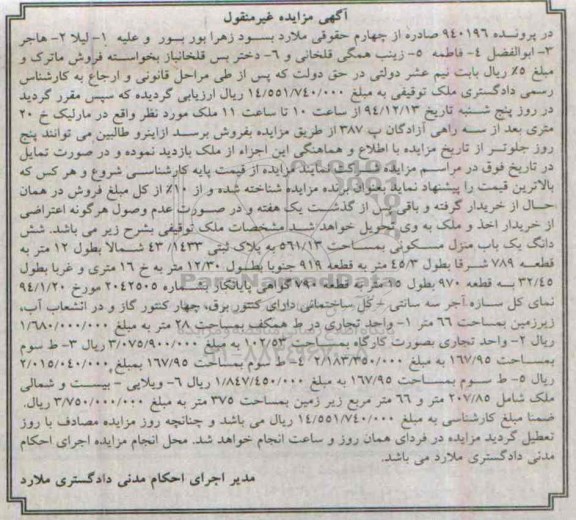 آگهی مزایده غیرمنقول
در پرونده ۹۴۰۱۹۶ صادره از چهارم حقوقی ملارد بسود زهرا پور بسور و علیه ۱- لیلا ۲- هاجر
۳- ابوالفضل ۴- فاطمه ۵- زینب همگی قلخانی و ۶- دختر بس قلخانباز بخواسته فروش ماترک و
مبلغ ۵٪ ریال بابت نیم عشر دولتی در حق دولت که پس از طی مراحل قانونی و ارجاع به کارشناس
رسمی دادگستری ملک توقیفی به مبلغ ۱۴/۵۵۱/۷۴۰/۰۰۰ ریال ارزیابی گردیده که سپس مقرر گردید
در روز پنج شنبه تاریخ ۹۴/۱۲/۱۳ از ساعت ۱۰ تا ساعت ۱۱ ملک مورد نظر واقع در مارلیک خ ۲۰
متری بعد از سه راهی آزادگان پ ۳۸۷ از طریق مزایده بفروش برسد ازاینرو طالبین می توانند پنج
روز جلوتر از تاریخ مزایده با اطلاع و هماهنگی این اجراء از ملک بازدید نموده و در صورت تمایل
در تاریخ فوق در مراسم مزایده شرکت نمایند مزایده از قیمت پایه کارشناسی شروع و هر کس که
بالاترین قیمت را پیشنهاد نماید بعنوان برنده مزایده شناخته شده و از ۱۰٪ از کل مبلغ فروش در همان
حال از خریدار گرفته و باقی پس از گذشت یک هفته و در صورت عدم وصول هرگونه اعتراضی
از خریدار اخذ و ملک به وی تحویل خواهد شد مشخصات ملک توقیفی بشرح زیر می باشد. شش
دانگ یک باب منزل مسکونی بمساحت ۵۶۱/۱۳ به پلاک ثبتی ۴۳/۱۴۳۳ شمالا بطول ۱۲ متر به
قطعه ۷۸۹ شرقا بطول ۴۵/۳ متر به قطعه ۹۱۹ جنوبا بطول ۱۲/۳۰ متر به خ ۱۶ متری و غربا بطول
۳۲/۴۵ به قطعه ۹۷۰ بطول ۱۵ متر به قطعه ۷۹۰ گواهی پایانکار شماره ۲۰۴۲۵۰۵ مورخ ۹۴/۱/۲۰
نمای کل سازه آجر سه سانتی - کل ساختمانی دارای کنتور برق، چهار کنتور گاز و در انشعاب آب،
زیرزمین بمساحت ۶۶ متر ۱- واحد تجاری در ط همکف بمساحت ۲۸ متر به مبلغ ۱/۶۸۰/۰۰۰/۰۰۰
ریال ۲- واحد تجاری بصورت کارگاه بمساحت ۱۰۲/۵۳ به مبلغ ۳/۰۷۵/۹۰۰/۰۰۰ ریال ۳- ط سوم
بمساحت ۱۶۷/۹۵ به مبلغ ۲/۱۸۳/۳۵۰/۰۰۰ ۴- ط سوم بمساحت ۱۶۷/۹۵ بمبلغ ۲/۰۱۵/۰۴۰/۰۰۰
ریال ۵- ط سوم بمساحت ۱۶۷/۹۵ به مبلغ ۱/۸۴۷/۴۵۰/۰۰۰ ریال ۶- ویلایی - بیست و شمالی
ملک شامل ۲۰۷/۸۵ متر و ۶۶ متر مربع زیر زمین بمساحت ۳۷۵ متر به مبلغ ۳/۷۵۰/۰۰۰/۰۰۰ ریال.
ضمنا مبلغ کارشناسی به مبلغ ۱۴/۵۵۱/۷۴۰/۰۰۰ ریال می باشد و چنانچه روز مزایده مصادف با روز
تعطیل گردید مزایده در فردای همان روز و ساعت انجام خواهد شد. محل انجام مزایده اجرای احکام
مدنی دادگستری ملارد می باشد.
مدیر اجرای احکام مدنی دادگستری ملارد